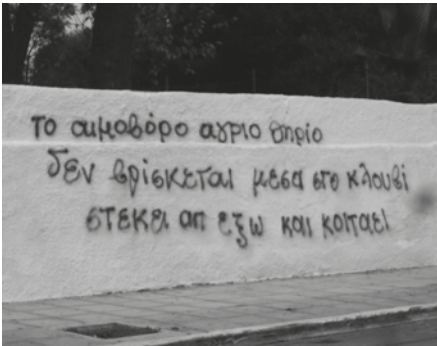 το αιμοβόρο αγριο θηριο
δεν βρίσκεται μεσα στο κλουβί
στεκει απ εξω και κοιταει